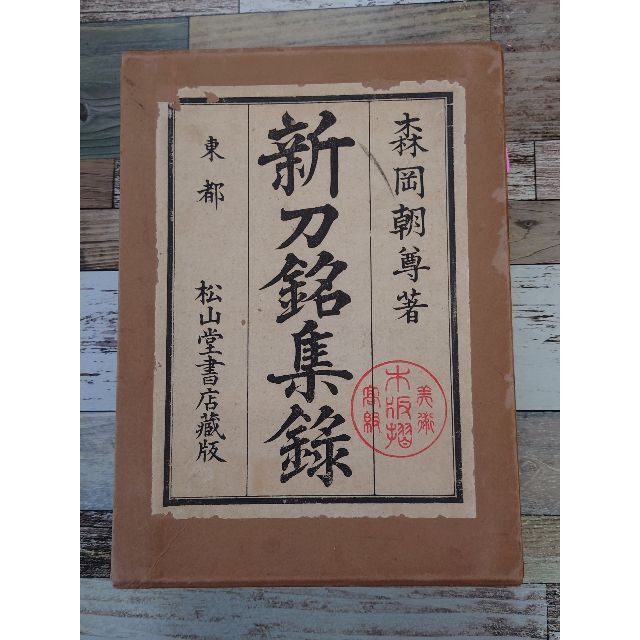 森岡朝尊著
新刀銘集錄
東都
松山堂書店藏版
美術
木版摺
高級